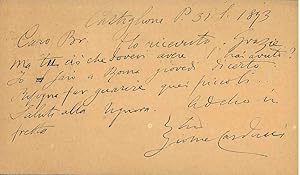 Castiglione P 31. 1. 1893
Caro Br. Ho ricevuto. Grazie
Ma tu ciò che dovevi avere l'hai avuto?
Io sarò a Roma giovedì di certo.
per guarire quei piccoli.
Saluti alla Signora. Addio in
fretta
Giosue Carducci